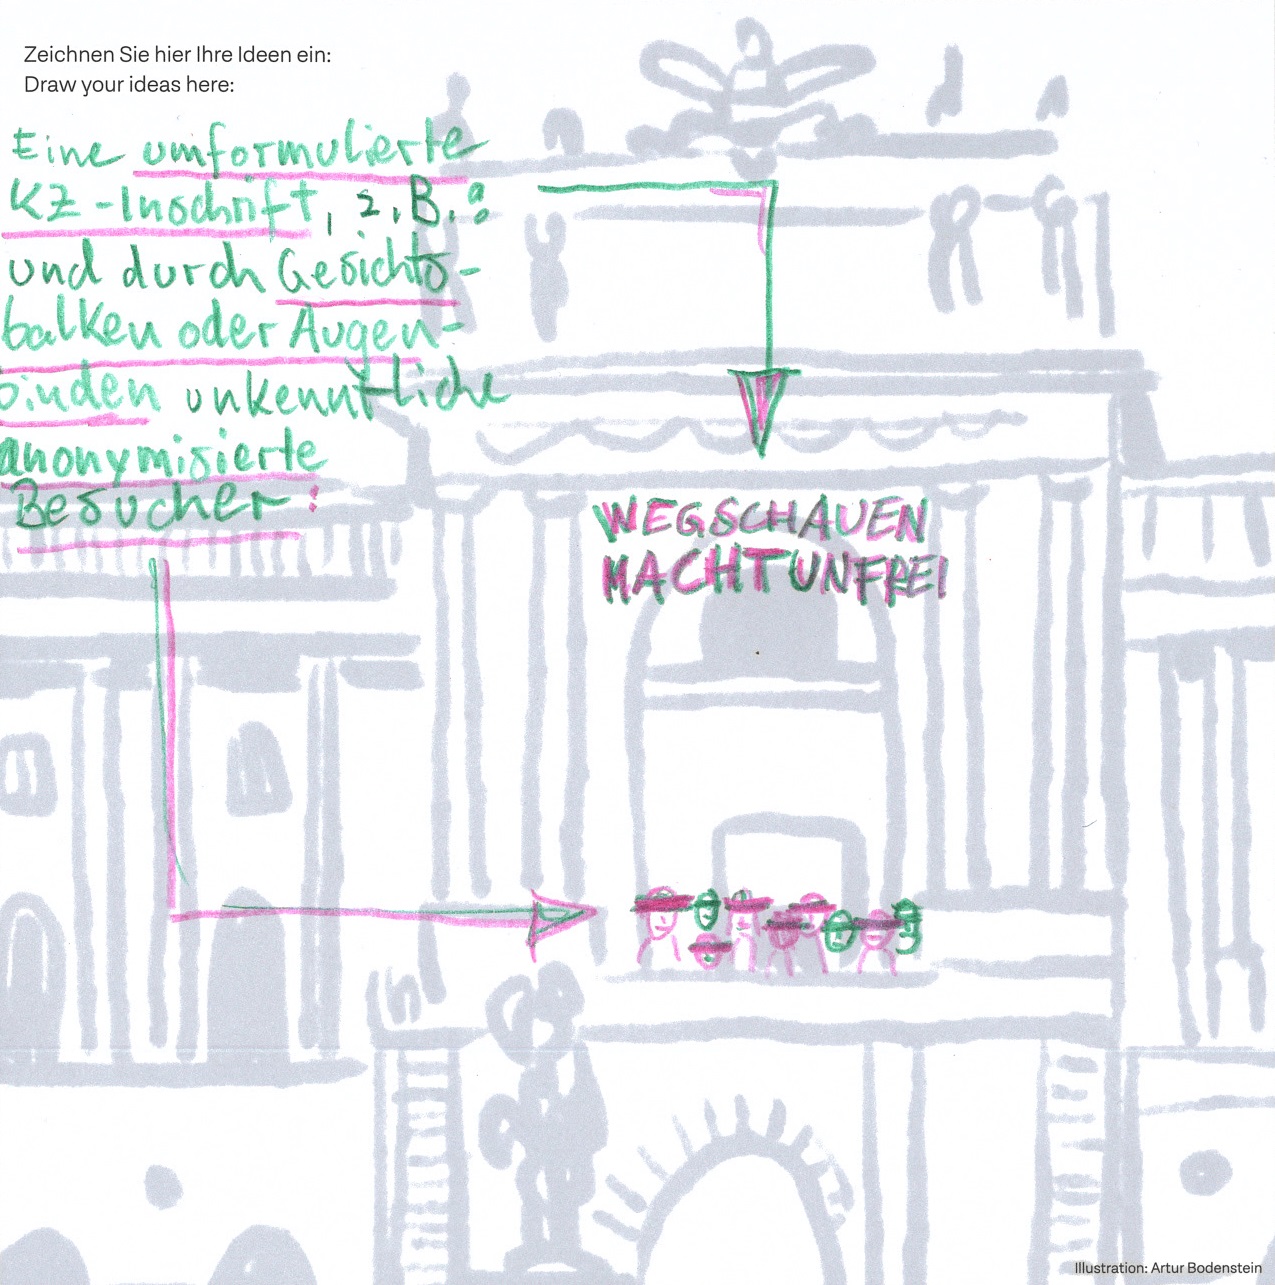 Zeichnen Sie hier Ihre Ideen ein:
Draw your ideas here:
Eine umformulierte
KZ-Inschrift, z.B.:
und durch Gesichts-
balken oder Augen-
binden unkenntliche
anonymisierte
Besucher!
WEGSCHAUEN
MACHT UNFREI
Illustration: Artur Bodenstein